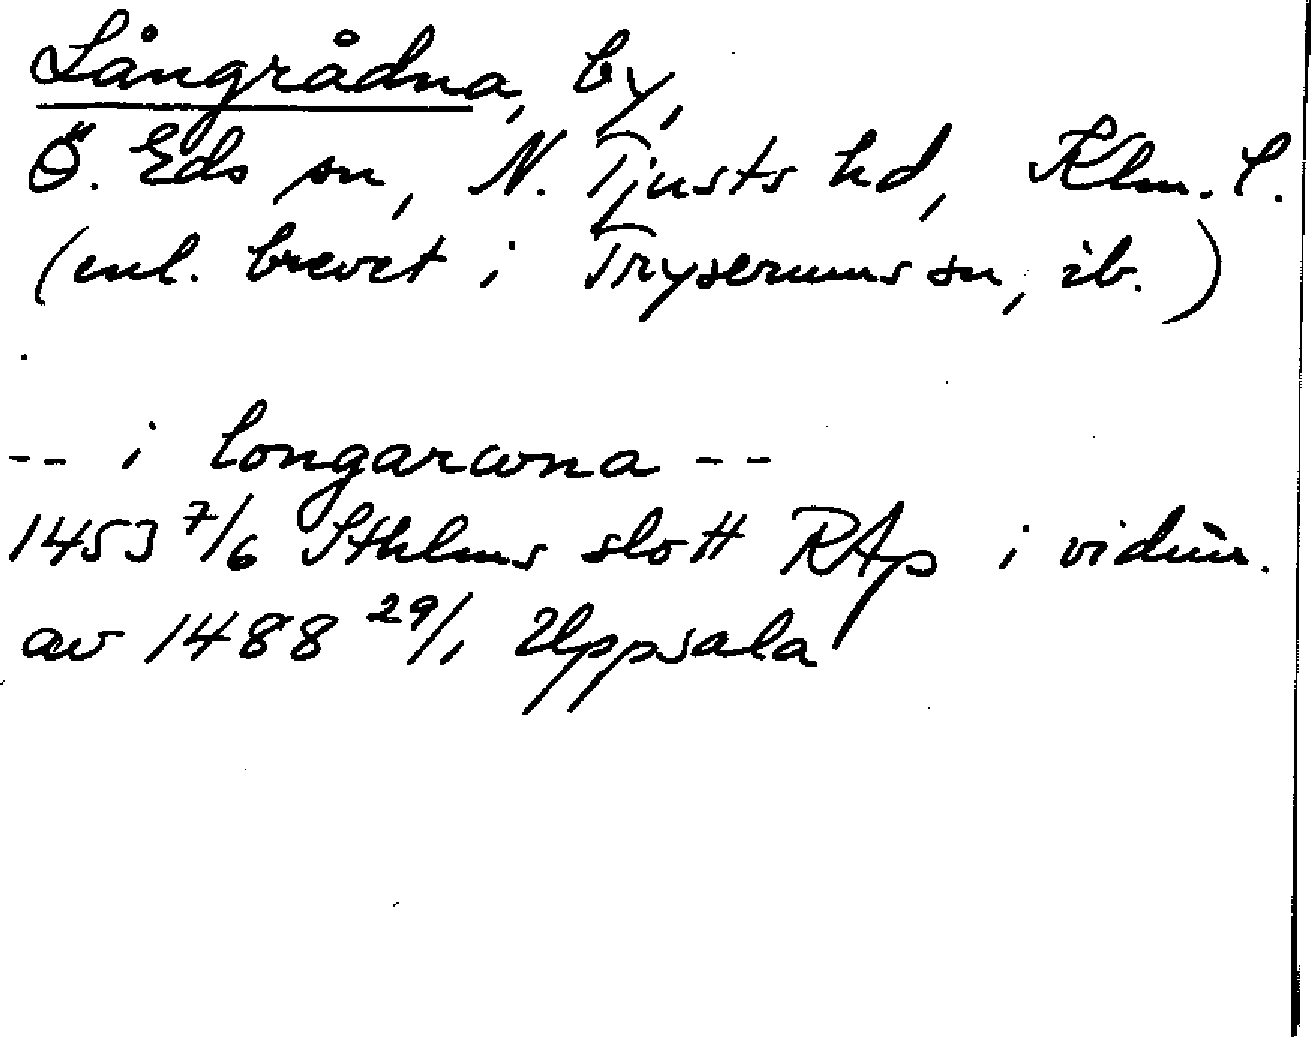 Långrådna, by,
Ö. Eds sn, N. Tjusts hd, Klm. l.
(enl. brevet i Tryserums sn, ib.)
-- i longarwna --
1453 7/6 Sthlms slott RAp i vidim.
av 1488 29/1 Uppsala